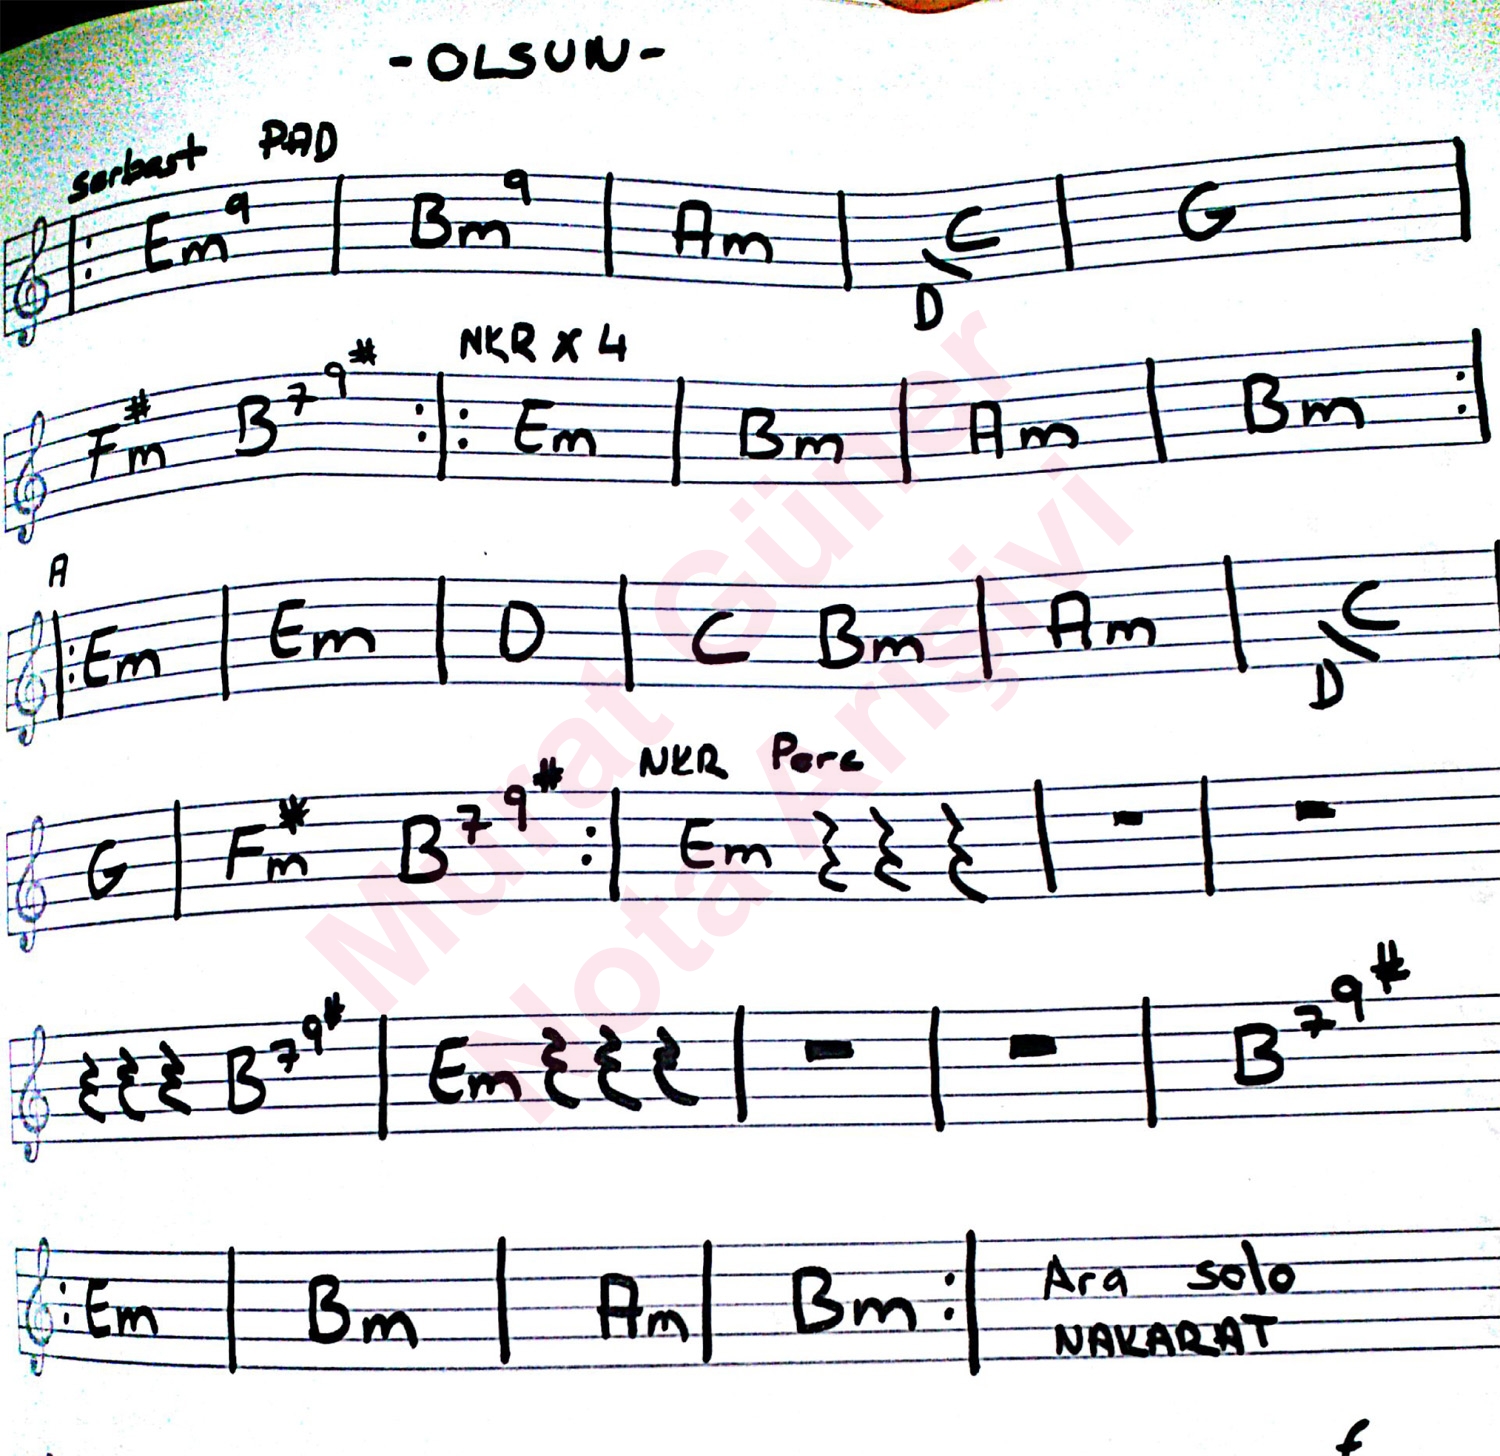 - OLSUN -
serbest PAD
Em9 Bm9 Am C\D G
F#m B7 9# NKR X 4 Em Bm Am Bm
A
Em Em D C Bm Am C\D
NKR
G F#m B7 9# Em
B7 9# Em B7 9#
Em Bm Am Bm Ara solo
NAKARAT
Murat Güner
Nota Arışivi